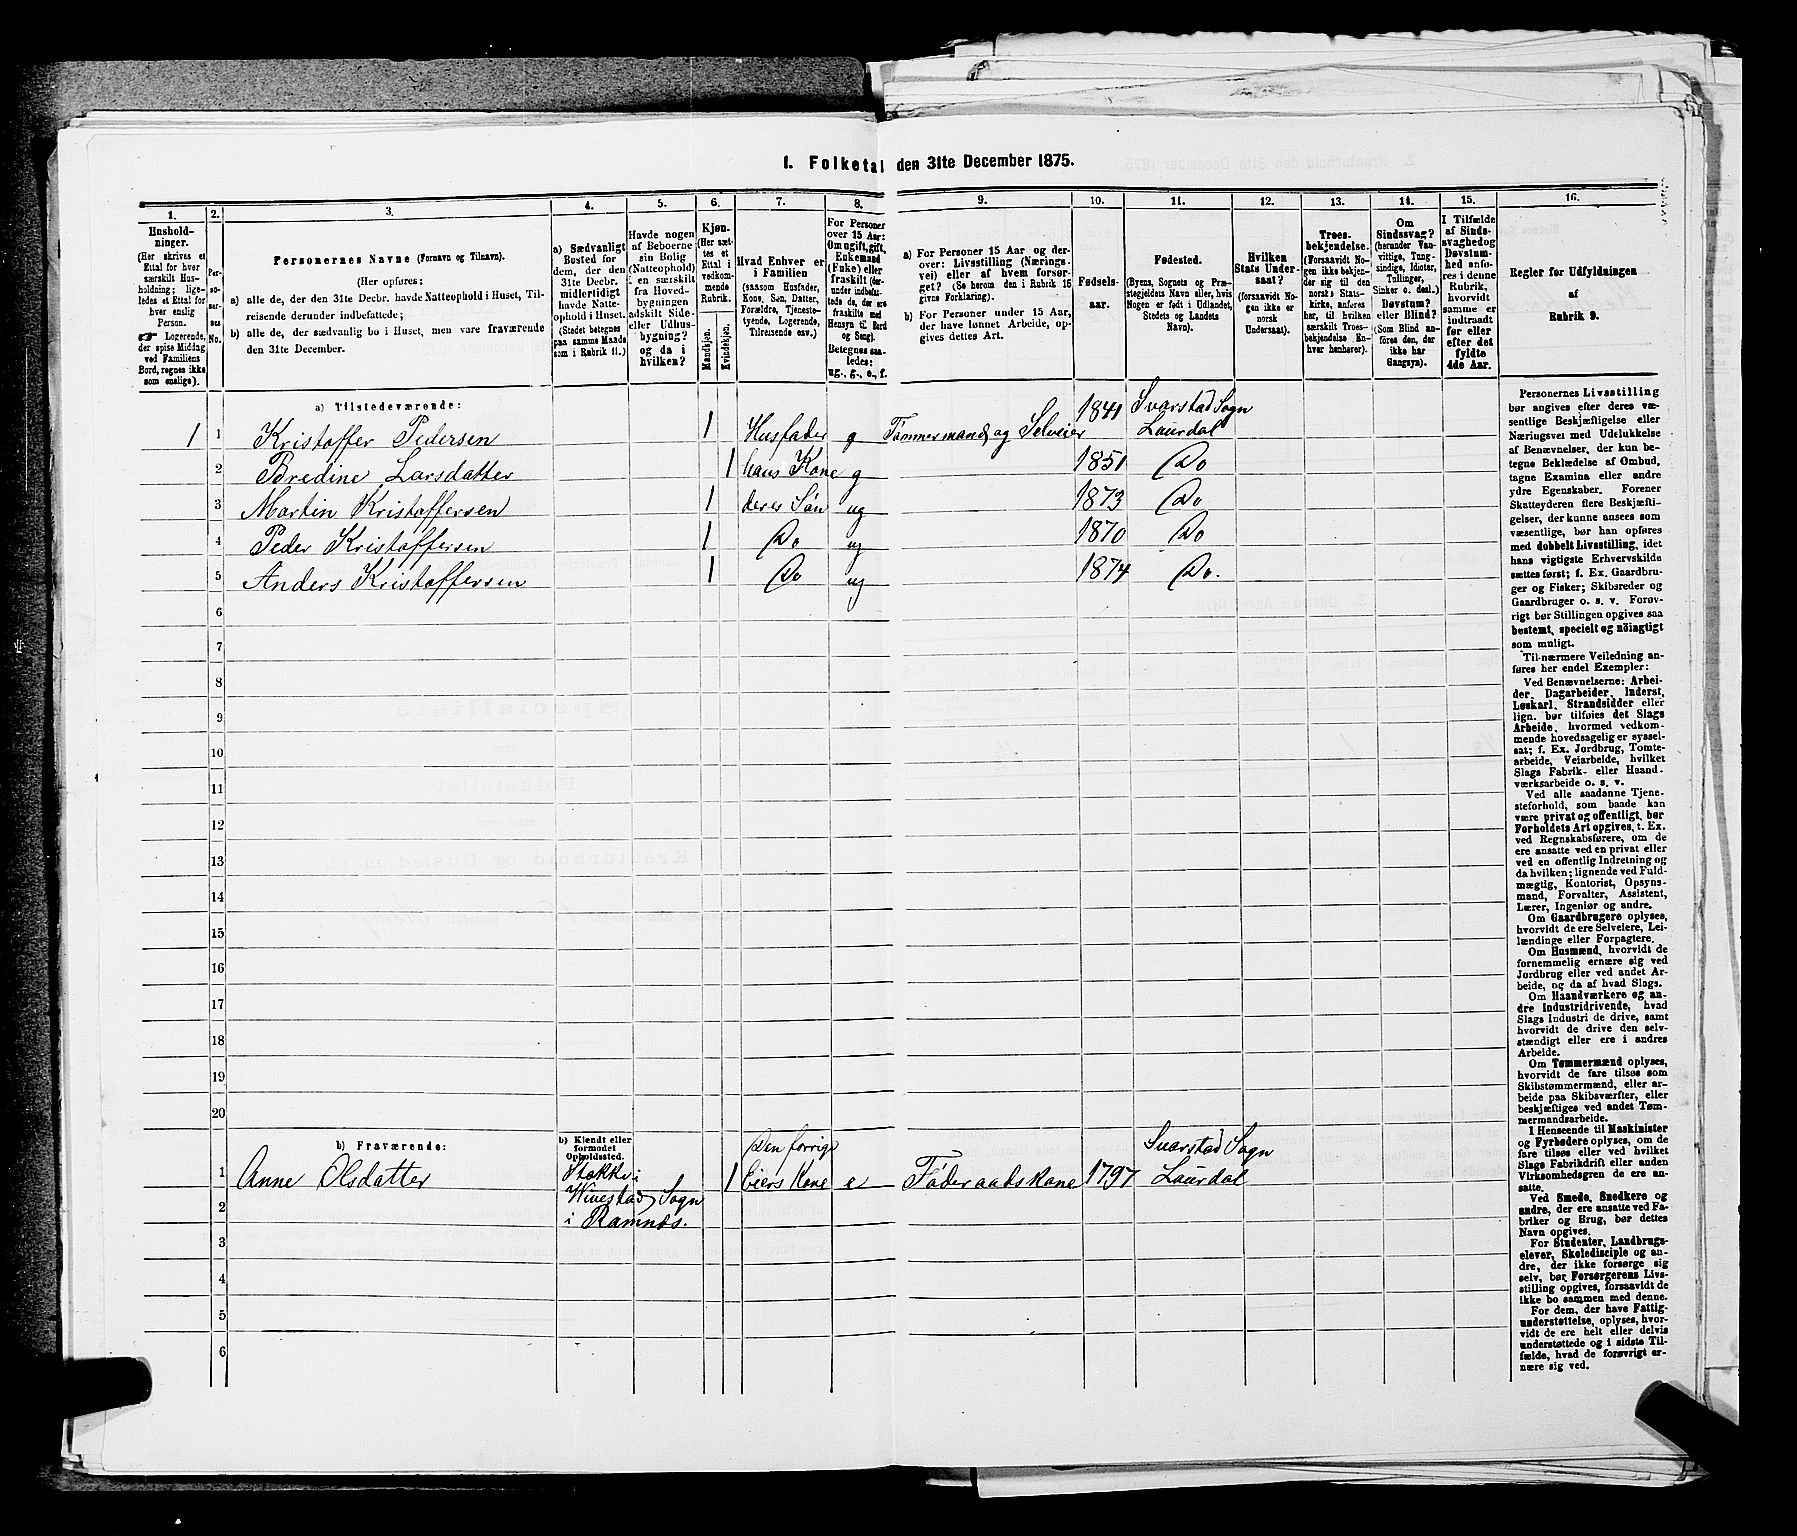 1. Folketal den 31te December 1875.
1.
Hushold-
ninger.
(Her skrives et
Ettal for hver
særskilt Hus-
holdning; lige-
ledes et Ettal for
hver enslig
Person.
Logerende,
der spise Middag
ved Familiens
Bord, regnes ikke
som enslige).
2.
Per-
so-
ner-
nes
No.
3.
Personernes Navne (Fornavn og Tilnavn).
(Her opføres:
a) alle de, der den 31te Decbr. havde Natteophold i Huset, Til-
reisende derunder indbefattede;
b) alle de, der sædvanlig bo i Huset, men vare fraværende
den 31te December.
4.
a) Sædvanligt
Bosted for
dem, der den
31te Decbr.
midlertidigt
havde Natte-
ophold i Huset.
(Stedet betegnes
paa samme Maade
som i Rubrik 11.)
5.
Havde nogen
af Beboerne
sin Bolig
(Natteophold)
i en særskilt
fra Hoved-
bygningen
adskilt Side-
eller Udhus-
bygning?
og da i
hvilken?
6.
Kjøn.
(Her sæt-
tes et
Ettal i
vedkom-
mende
Rubrik.
Mandkjøn.
Kvindekjøn.
7.
Hvad Enhver er
i Familien
(saasom Husfader,
Kone, Søn, Datter,
Forældre, Tjeneste-
tyende, Logerende,
Tilreisende osv.)
8.
For Personer
over 15 Aar:
Om ugift, gift,
Enkemand
(Enke) eller
fraskilt (der-
under indbefat-
tede de, der ere
fraskilte med
Hensyn til Bord
og Seng).
Betegnes saa-
ledes:
ug., g., e., f.
9.
a) For Personer 15 Aar og der-
over: Livsstilling (Nærings-
vei) eller af hvem forsør-
get? (Se herom den i Rubrik 16
givne Forklaring).
b) For Personer under 15 Aar,
der have lønnet Arbeide, op-
gives dettes Art.
10.
Fødsels-
aar.
11.
Fødested.
(Byens, Sognets og Præ-
stegjeldets Navn eller, hvis
Nogen er født i Udlandet,
Stedets og Landets
Navn).
12.
Hvilken
Stats Under-
saat?
(forsaavidt No-
gen ikke er
norsk
Undersaat).
13.
Troes-
bekjendelse.
(Forsaavidt No-
gen ikke bekjen-
der sig til den
norske Stats-
kirke, anføres
her, til hvilken
særskilt Troes-
bekjendelse En-
hver henhører).
14.
Om
Sindssvag?
(herunder Van-
vittige, Tung-
sindige, Idioter,
Tullinger,
Sinker o. desl.)
Døvstum?
eller Blind?
(Som Blind an-
føres den, der
ikke har
Gangsyn).
15.
I Tilfælde
af Sinds-
svaghed og
Døvstum-
hed anfø-
res i denne
Rubrik,
hvorvidt
samme er
indtraadt
før eller
efter det
fyldte
4de Aar.
16.
Regler for Udfyldningen
af
Rubrik 9.
a) Tilstedeværende:
1 1 Kristoffer Pedersen 1 Husfader g Tømmermand og Selveier 1841 Svarstad Sogn Laurdal
2 Bredine Larsdatter 1 hans Kone g 1851 Do
3 Martin Kristoffersen 1 deres Søn ug 1873 Do
4 Peder Kristoffersen 1 Do ug 1870 Do
5 Anders Kristoffersen 1 Do ug 1874 Do.
6
7
8
9
10
11
12
13
14
15
16
17
18
19
20
b) Fraværende:
b) Kjendt eller
formodet
Opholdssted.
1 Anne Olsdatter Stokke i 1 Den forrige Eiers Kone e Føderaadskone 1797 Svarstad Sogn Laurdal
2 Sogn
3 i Ramnæs.
4
5
6
Personernes Livsstilling
bør angives efter deres væ-
sentlige Beskjæftigelse eller
Næringsvei med Udelukkelse
af Benævnelser, der kun be-
tegne Beklædelse af Ombud,
tagne Examina eller andre
ydre Egenskaber. Forener
Skatteyderen flere Beskjæfti-
gelser, der kunne ansees som
væsentlige, bør han opføres
med dobbelt Livsstilling, idet
hans vigtigste Erhvervskilde
sættes først; f. Ex. Gaardbru-
ger og Fisker; Skibsreder og
Gaardbruger o. s. v. Forøv-
rigt bør Stillingen opgives saa
bestemt, specielt og nøiagtigt
som muligt.
Til nærmere Veiledning an-
føres her endel Exempler:
Ved Benævnelserne: Arbei-
der, Dagarbeider, Inderst,
Løskarl, Strandsidder eller
lign. bør tilføies det Slags
Arbeide, hvormed vedkom-
mende hovedsagelig er syssel-
sat; f. Ex. Jordbrug, Tomte-
arbeide, Veiarbeide, hvilket
Slags Fabrik- eller Haand-
værksarbeide o. s. v.
Ved alle saadanne Tjene-
steforhold, som baade kan
være privat og offentligt, bør
Forholdets Art opgives, t. Ex.
ved Regnskabsførere, om de
ere ansatte ved en privat eller
ved en offentlig Indretning og
da hvilken; lignende ved Fuld-
mægtig, Kontorist, Opsyns-
mand, Forvalter, Assistent,
Lærer, Ingeniør og andre.
Om Gaardbrugere oplyses,
hvorvidt de ere Selveiere, Lei-
lændinge eller Forpagtere.
Om Husmænd, hvorvidt de
fornemmelig ernære sig ved
Jordbrug eller ved andet Ar-
beide, og da af hvad Slags.
Om Haandværkere og an-
dre Industridrivende, hvad
Slags Industri de drive, samt
hvorvidt de drive den selv-
stændigt eller ere i andres
Arbeide.
Om Tømmermænd oplyses,
hvorvidt de fare tilsøs som
Skibstømmermænd, eller ar-
beide paa Skibsværfter, eller
beskjæftiges ved andet Tøm-
mermandsarbeide.
I Henseende til Maskinister
og Fyrbødere oplyses, om de
fare tilsøs eller ved hvilket
Slags Fabrikdrift eller anden
Virksomhedsgren de ere an-
satte.
Ved Smede, Snedkere og
andre, der ere ansatte ved Fa-
briker og Brug, bør dettes
Navn opgives.
For Studenter, Landbrugs-
elever, Skoledisciple og an-
dre, der ikke forsørge sig
selv, bør Forsørgerens Livs-
stilling opgives, forsaavidt de
ikke bo sammen med denne.
For dem, der have Fattig-
understøttelse, oplyses, hvor-
vidt de ere helt eller delvis
understøttede og i sidste Til-
fælde, hvad de forøvrigt er-
nære sig ved.